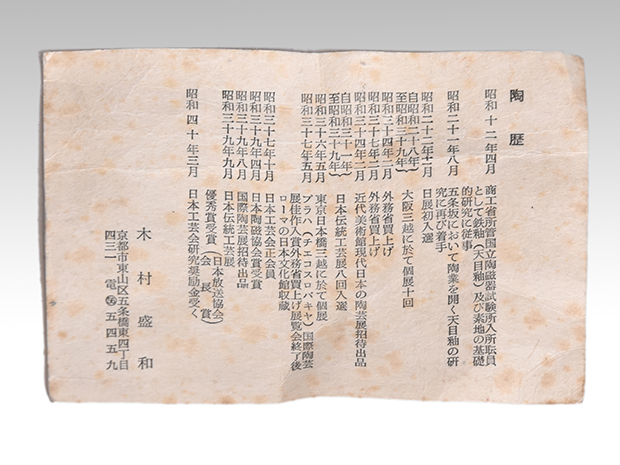 陶歴
昭和十二年四月 商工省所管国立陶磁器試験所入所転員
として鉄釉(天目釉)及び素地の基礎
的研究に従事
昭和二十一年八月 五条坂において陶業を開く天目釉の研
究に再び着手
昭和二十二年十二月 日展初入選
自昭和二八年
至昭和三九年 大阪三越に於て個展十回
昭和三十四年二月 外務省買上げ
昭和三十七年二月 外務省買上げ
昭和三十四年二月 近代美術館現代日本の陶芸展招待出品
自昭和三一年
至昭和三九年 日本伝統工芸展八回入選
昭和三十六年五月 東京日本橋三越に於て個展
昭和三十七年五月 プラハ(チエコスロバキヤ)国際陶芸
展佳作入賞外務省買上げ展覧会終了後
ローマの日本文化館収蔵
昭和三十七年十月 日本工芸会正会員
昭和三十九年四月 日本陶磁協会賞受賞
昭和三十九年八月 国際陶芸展招待出品
昭和三十九年九月 日本伝統工芸展
優秀賞受賞(日本放送協会会長賞)
昭和四十年三月 日本工芸会研究奨励金受く
木村盛和
京都市東山区五条橋東四丁目
四三一 電 五四五九